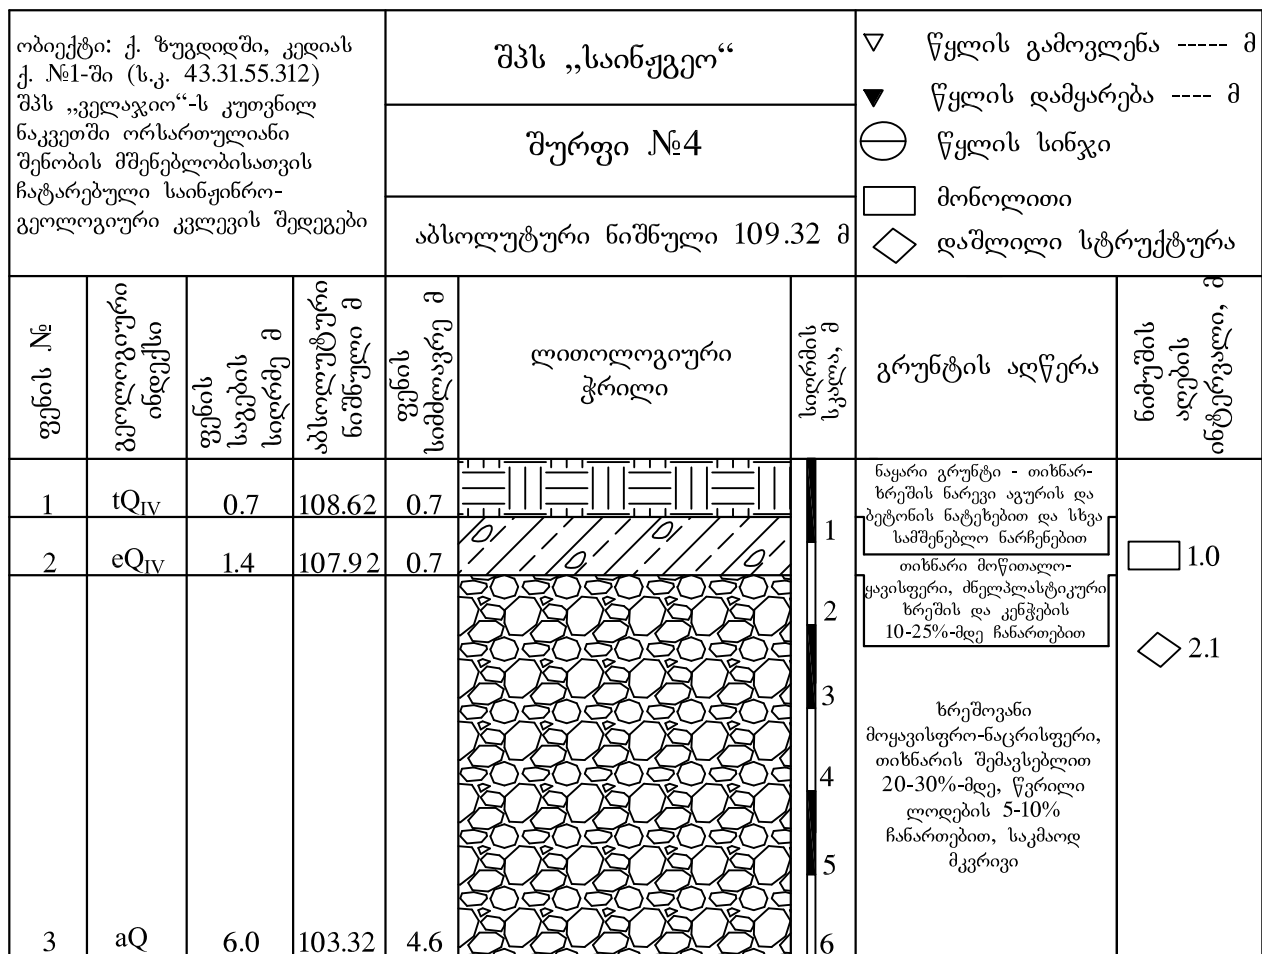 ობიექტი: ქ. ზუგდიდში, კედიას
ქ. №1-ში (ს.კ. 43.31.55.312)
შპს „ველაჯიო“-ს კუთვნილ
ნაკვეთში ორსართულიანი
შენობის მშენებლობისათვის
ჩატარებული საინჟინრო-
გეოლოგიური კვლევის შედეგები
შპს „საინჟგეო“
შურფი №4
აბსოლუტური ნიშნული 109.32 მ
წყლის გამოვლენა ----- მ
წყლის დამყარება ---- მ
წყლის სინჯი
მონოლითი
დაშლილი სტრუქტურა
ფენის №
გეოლოგიური
ინდექსი
ფენის
საგების
სიღრმე მ
აბსოლუტური
ნიშნული მ
ფენის
სიმძლავრე მ
ლითოლოგიური
ჭრილი
სიღრმის
სკალა, მ
გრუნტის აღწერა
ნიმუშის
აღების
ინტერვალი, მ
1 tQIV 0.7 108.62 0.7
2 eQIV 1.4 107.92 0.7
3 aQ 6.0 103.32 4.6
1
2
3
4
5
6
ნაყარი გრუნტი - თიხნარ-
ხრეშის ნარევი აგურის და
ბეტონის ნატეხებით და სხვა
სამშენებლო ნარჩენებით
თიხნარი მოწითალო-
ყავისფერი, ძნელპლასტიკური
ხრეშის და კენჭების
10-25%-მდე ჩანართებით
ხრეშოვანი
მოყავისფრო-ნაცრისფერი,
თიხნარის შემავსებლით
20-30%-მდე, წვრილი
ლოდების 5-10%
ჩანართებით, საკმაოდ
მკვრივი
1.0
2.1